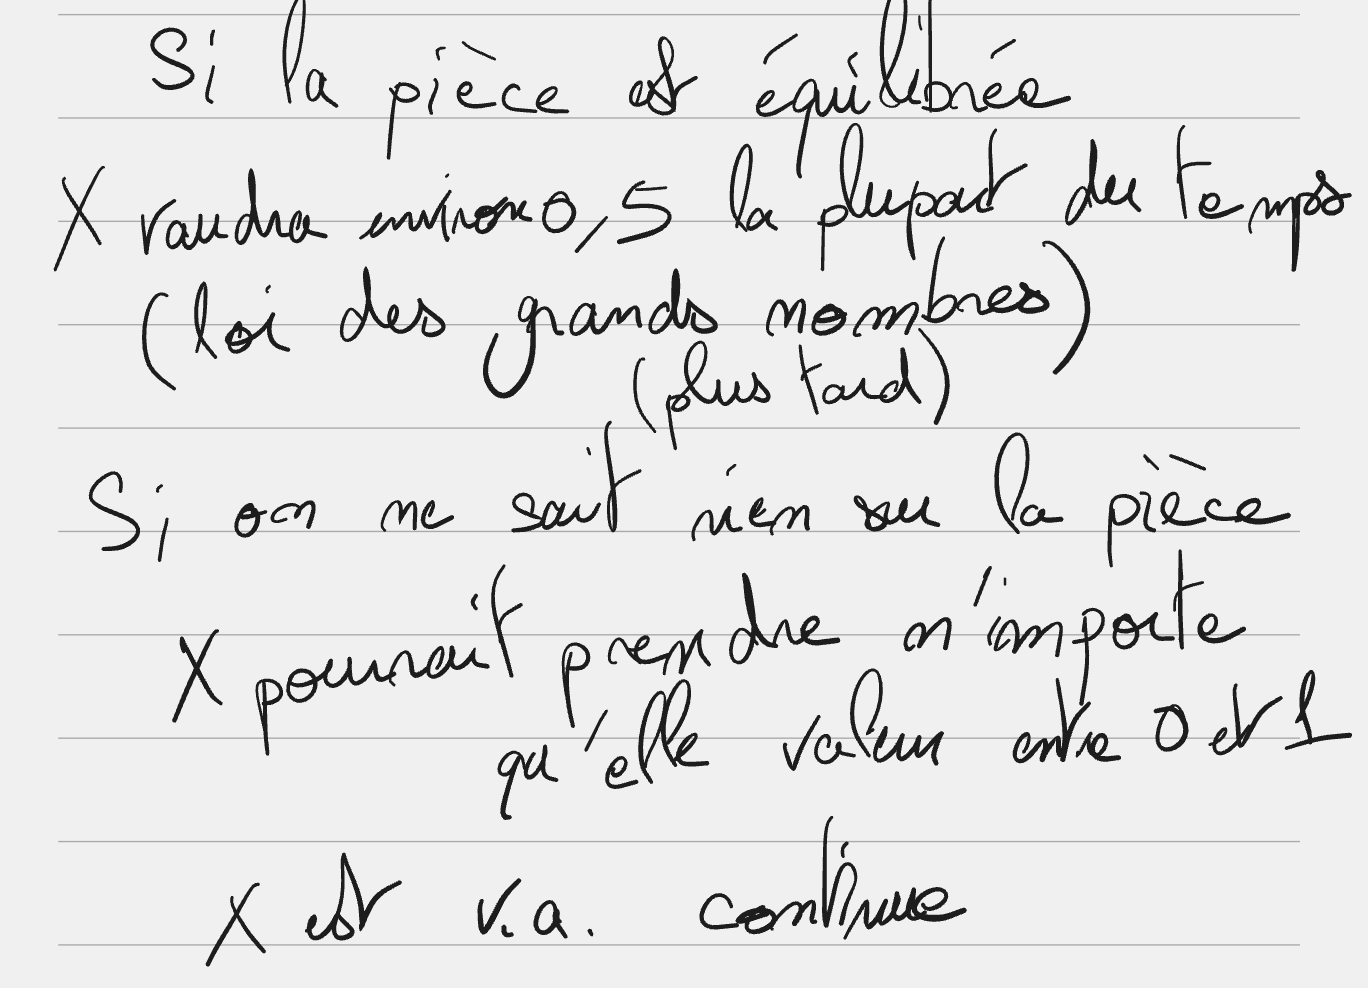 Si la pièce est équilibrée
X vaudra environ 0,5 la plupart du temps
(loi des grands nombres)
(plus tard)
Si on ne sait rien su la pièce
X pourrait prendre n'importe
qu'elle valeur entre 0 et 1
X est v.a. continue